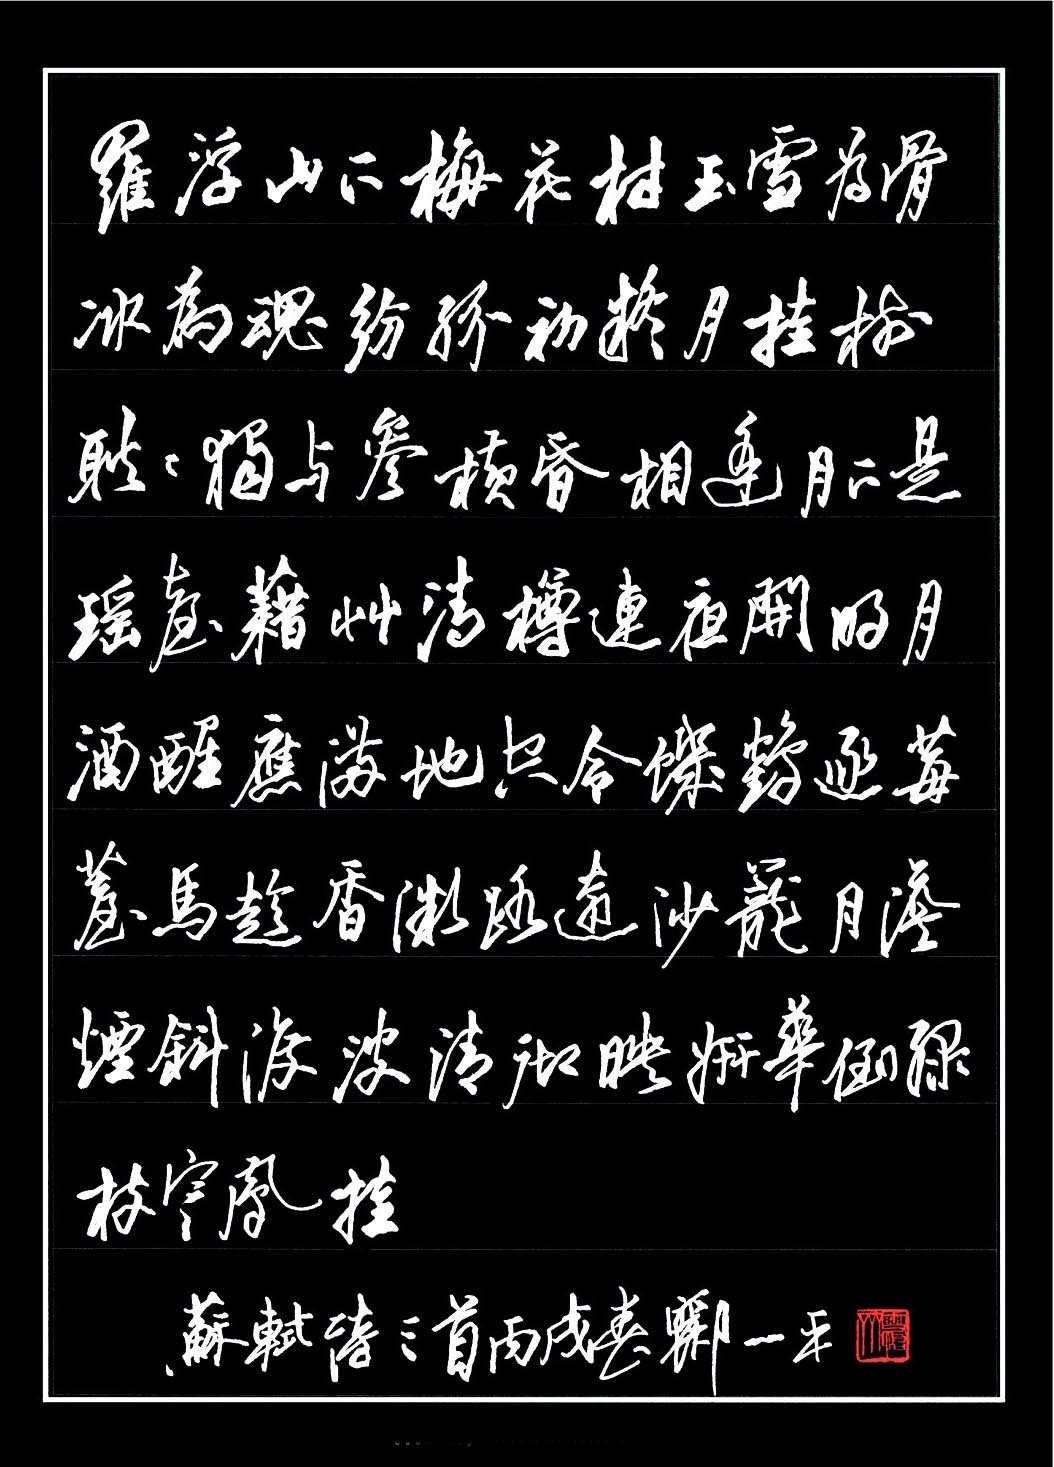 羅浮山下梅花村玉雪為骨
冰為魂紛紛初疑月挂樹
耿〻獨与參橫昏相逢月下是
瑶臺藉艸清樽連夜開明月
酒醒應滿地只令鶴逐莓
薹馬趁香微路遠沙籠月淡
煙斜渡波清映妍華倒緑
枝寒鳳挂
蘇軾詩三首丙戌春一平